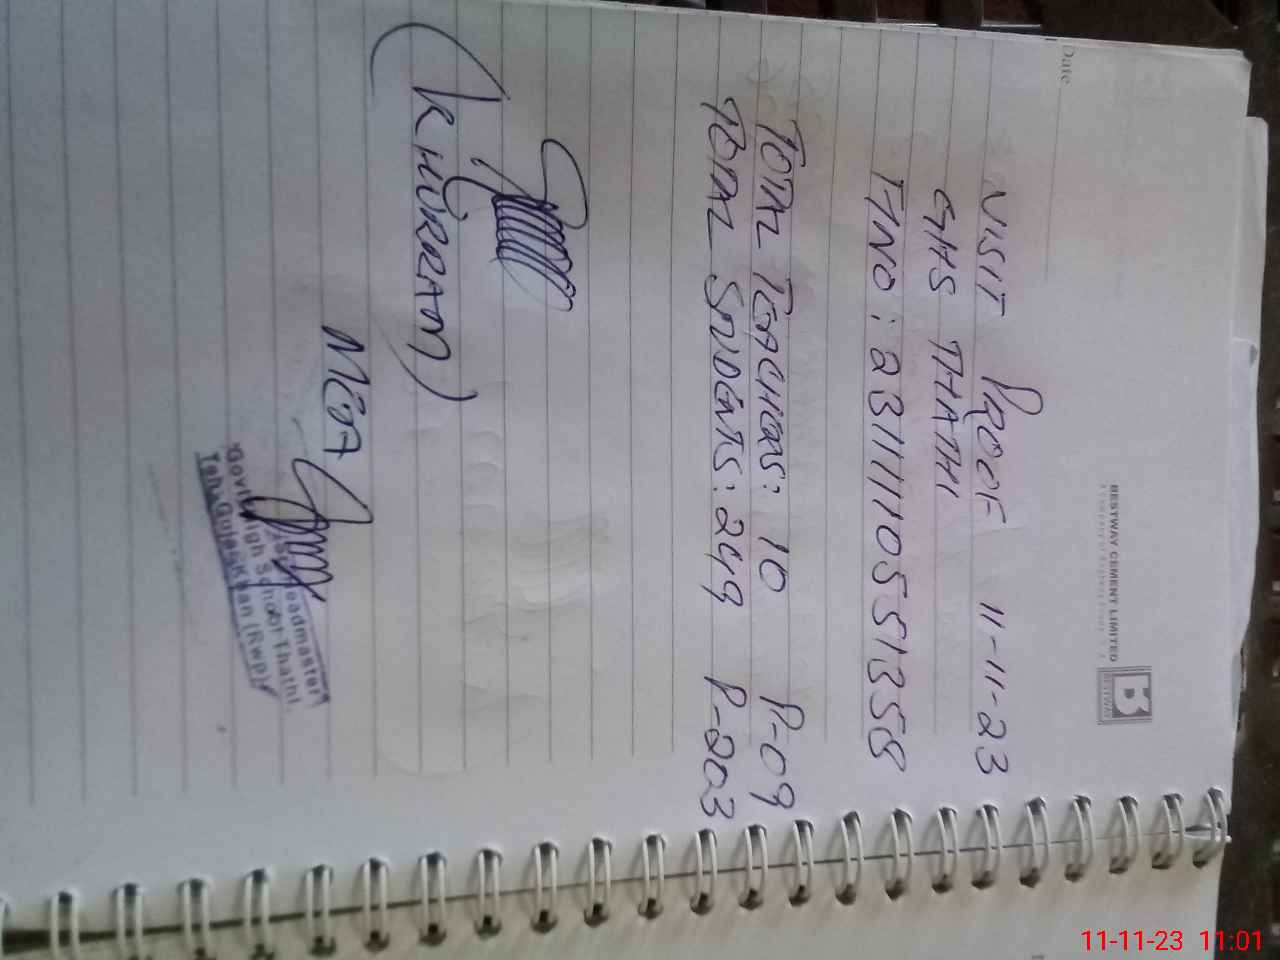 BESTWAY CEMENT LIMITED
BESTWAY
Date
VISIT PROOF 11-11-23
GHS THATHI
TOTAL TEACHERS: 10 P-09
TOTAL STUDENTS: 249 P-203
(KHURRAM)
MEA
Headmaster
Govt. High School Thathi
Teh. Gujar Khan (Rwp)
11-11-23 11:01